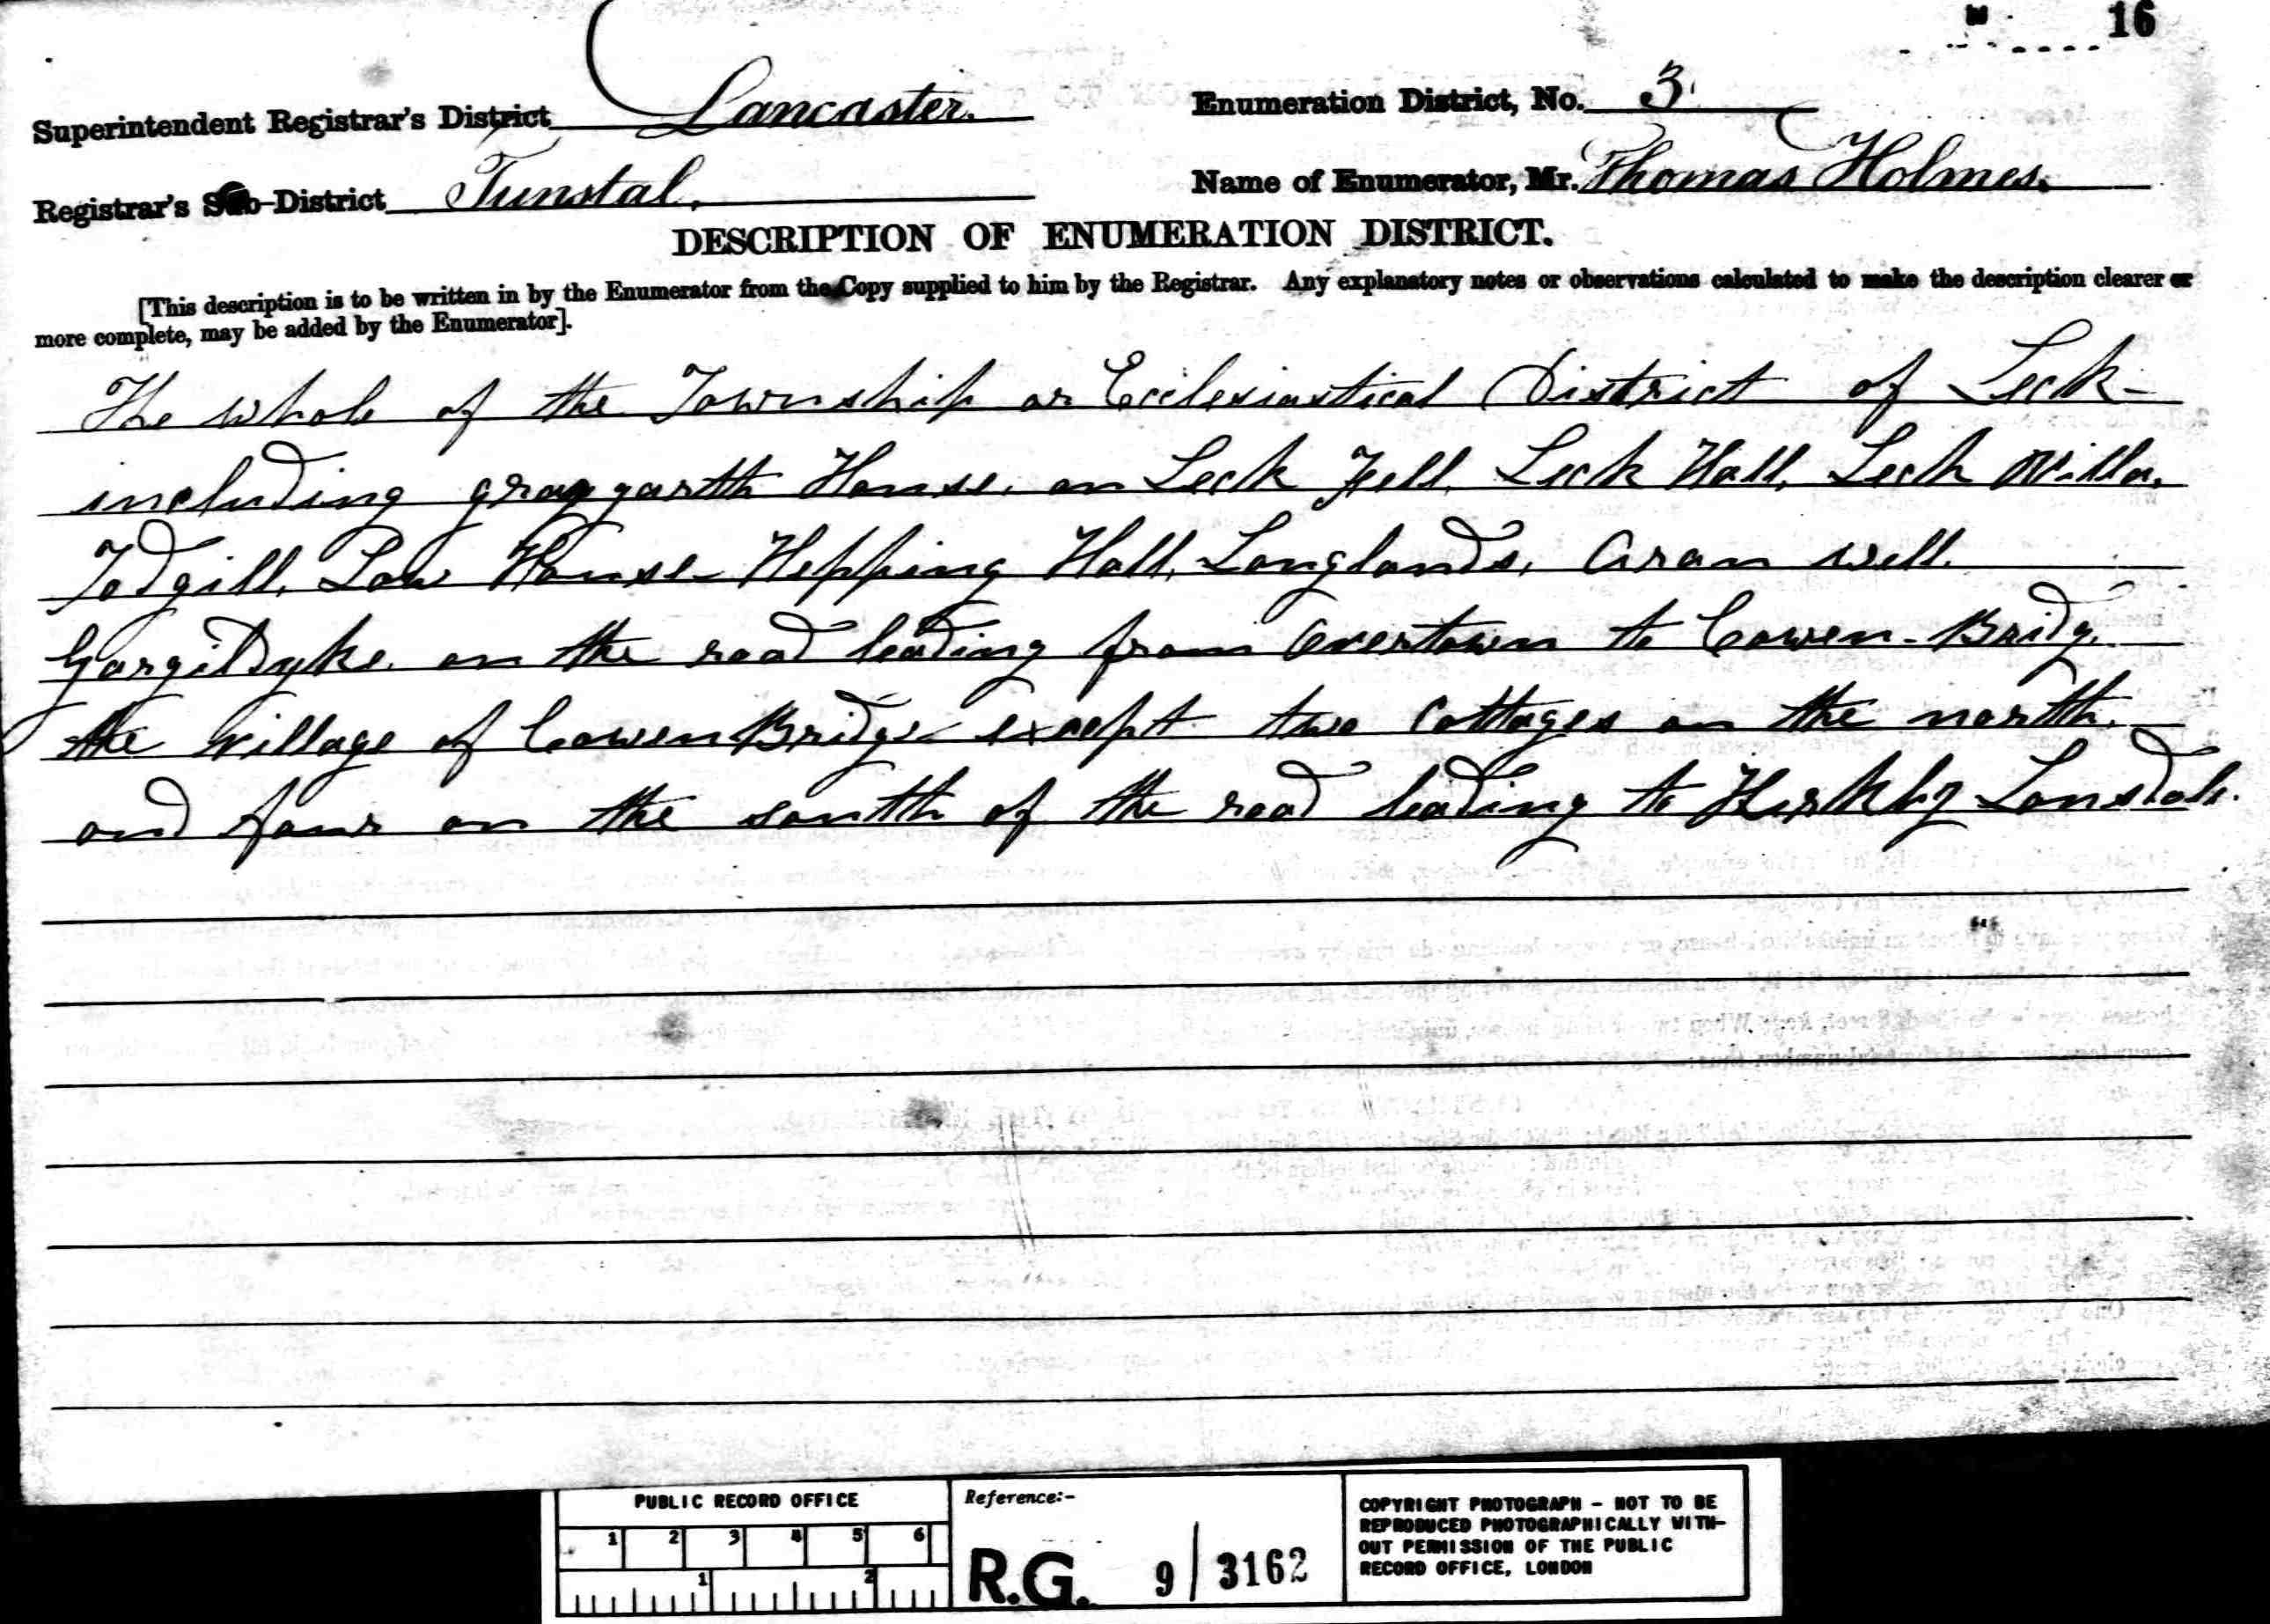 16
Superintendent Registrar's District Lancaster.
Enumeration District, No. 3
Registrar's Sub-District Tunstal.
Name of Enumerator, Mr. Thomas Holmes.
DESCRIPTION OF ENUMERATION DISTRICT.
[This description is to be written in by the Enumerator from the Copy supplied to him by the Registrar. Any explanatory notes or observations calculated to make the description clearer or
more complete, may be added by the Enumerator].
The whole of the Township or Ecclesiastical District of Leck
including graggarth House, on Leck Fell, Leck Hall, Leck Villa,
Todgill, Low House Hipping Hall, Longlands, Cran well.
Gargildyke on the road leading from Overtown to Cowen-Bridg.
the village of Cowen Bridge except two Cottages on the north.
and four on the south of the road leading to Kirkby Lonsdale.
PUBLIC RECORD OFFICE
1 2 3 4 5 6
1 2
Reference:-
R.G. 9 / 3162
COPYRIGHT PHOTOGRAPH - NOT TO BE
REPRODUCED PHOTOGRAPHICALLY WITH-
OUT PERMISSION OF THE PUBLIC
RECORD OFFICE, LONDON